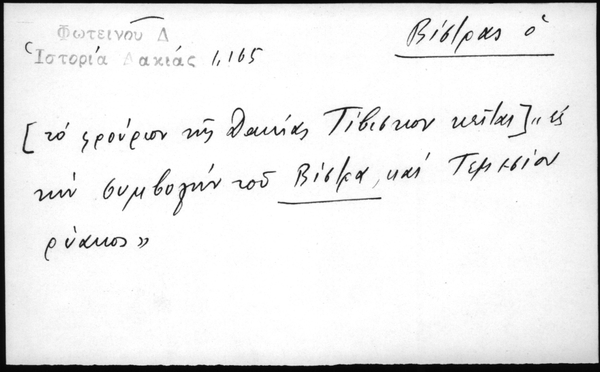 Φωτεινού Δ
Ἱστορία Δακίας 1,165
Βίστρας ὁ
[τό φρούριον τῆς Δακίας Τίβισκον κεῖται] „εἰς
τήν συμβολήν τοῦ Βίστρα, καί Τεμεσίου
ρύακος»